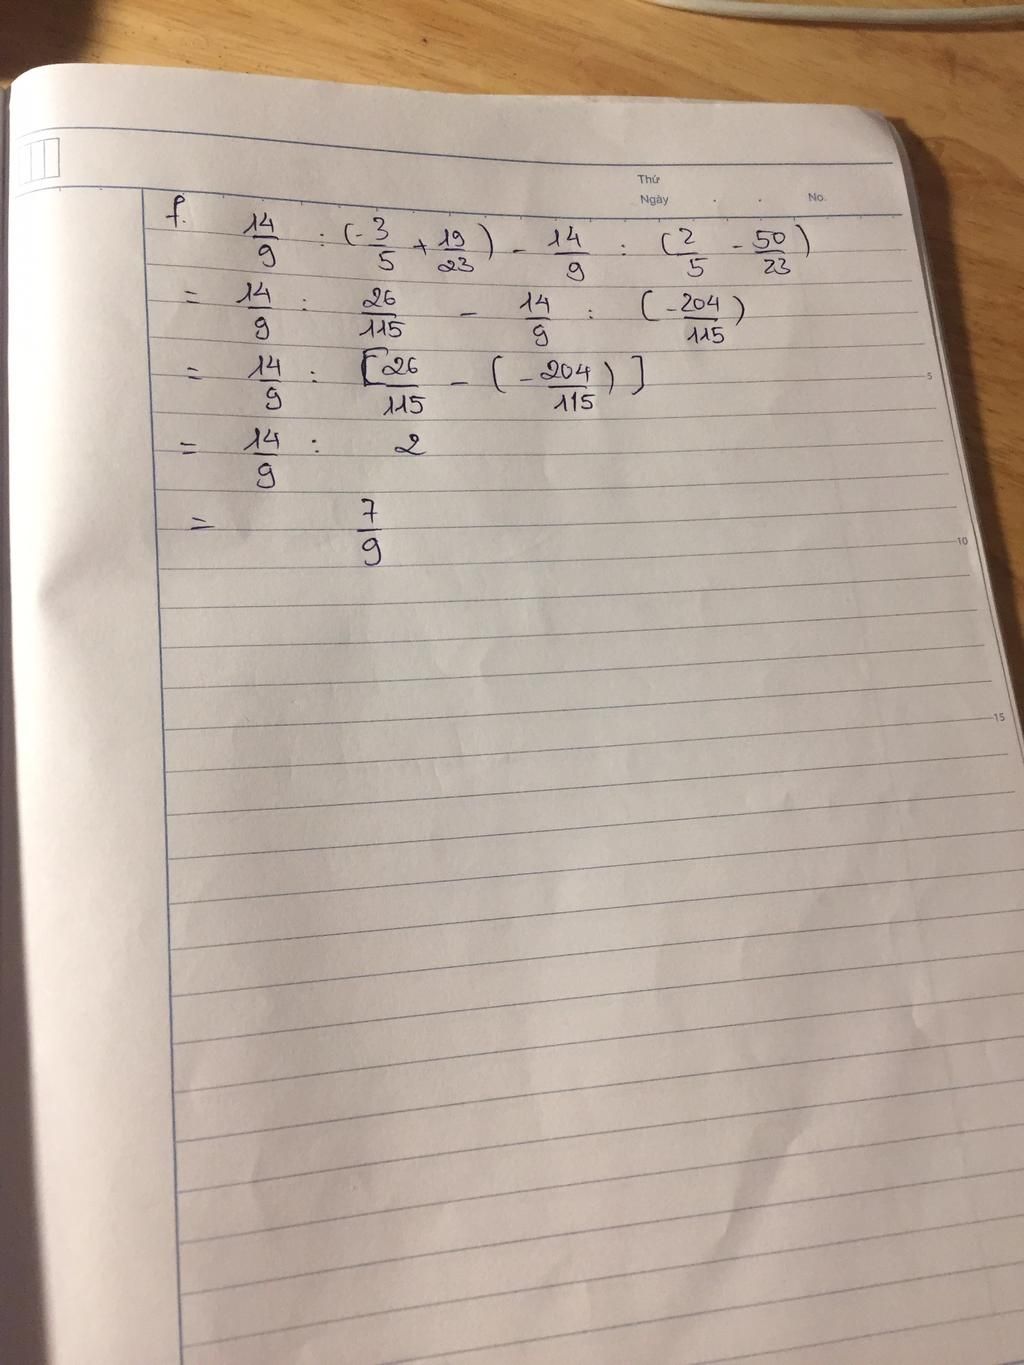 Thứ
Ngày . . No.
f. 14/9 : (-3/5 + 19/23) - 14/9 : (2/5 - 50/23)
= 14/9 : 26/115 - 14/9 : (-204/115)
= 14/9 : [26/115 - (-204/115)]
5
= 14/9 : 2
= 7/9
10
15